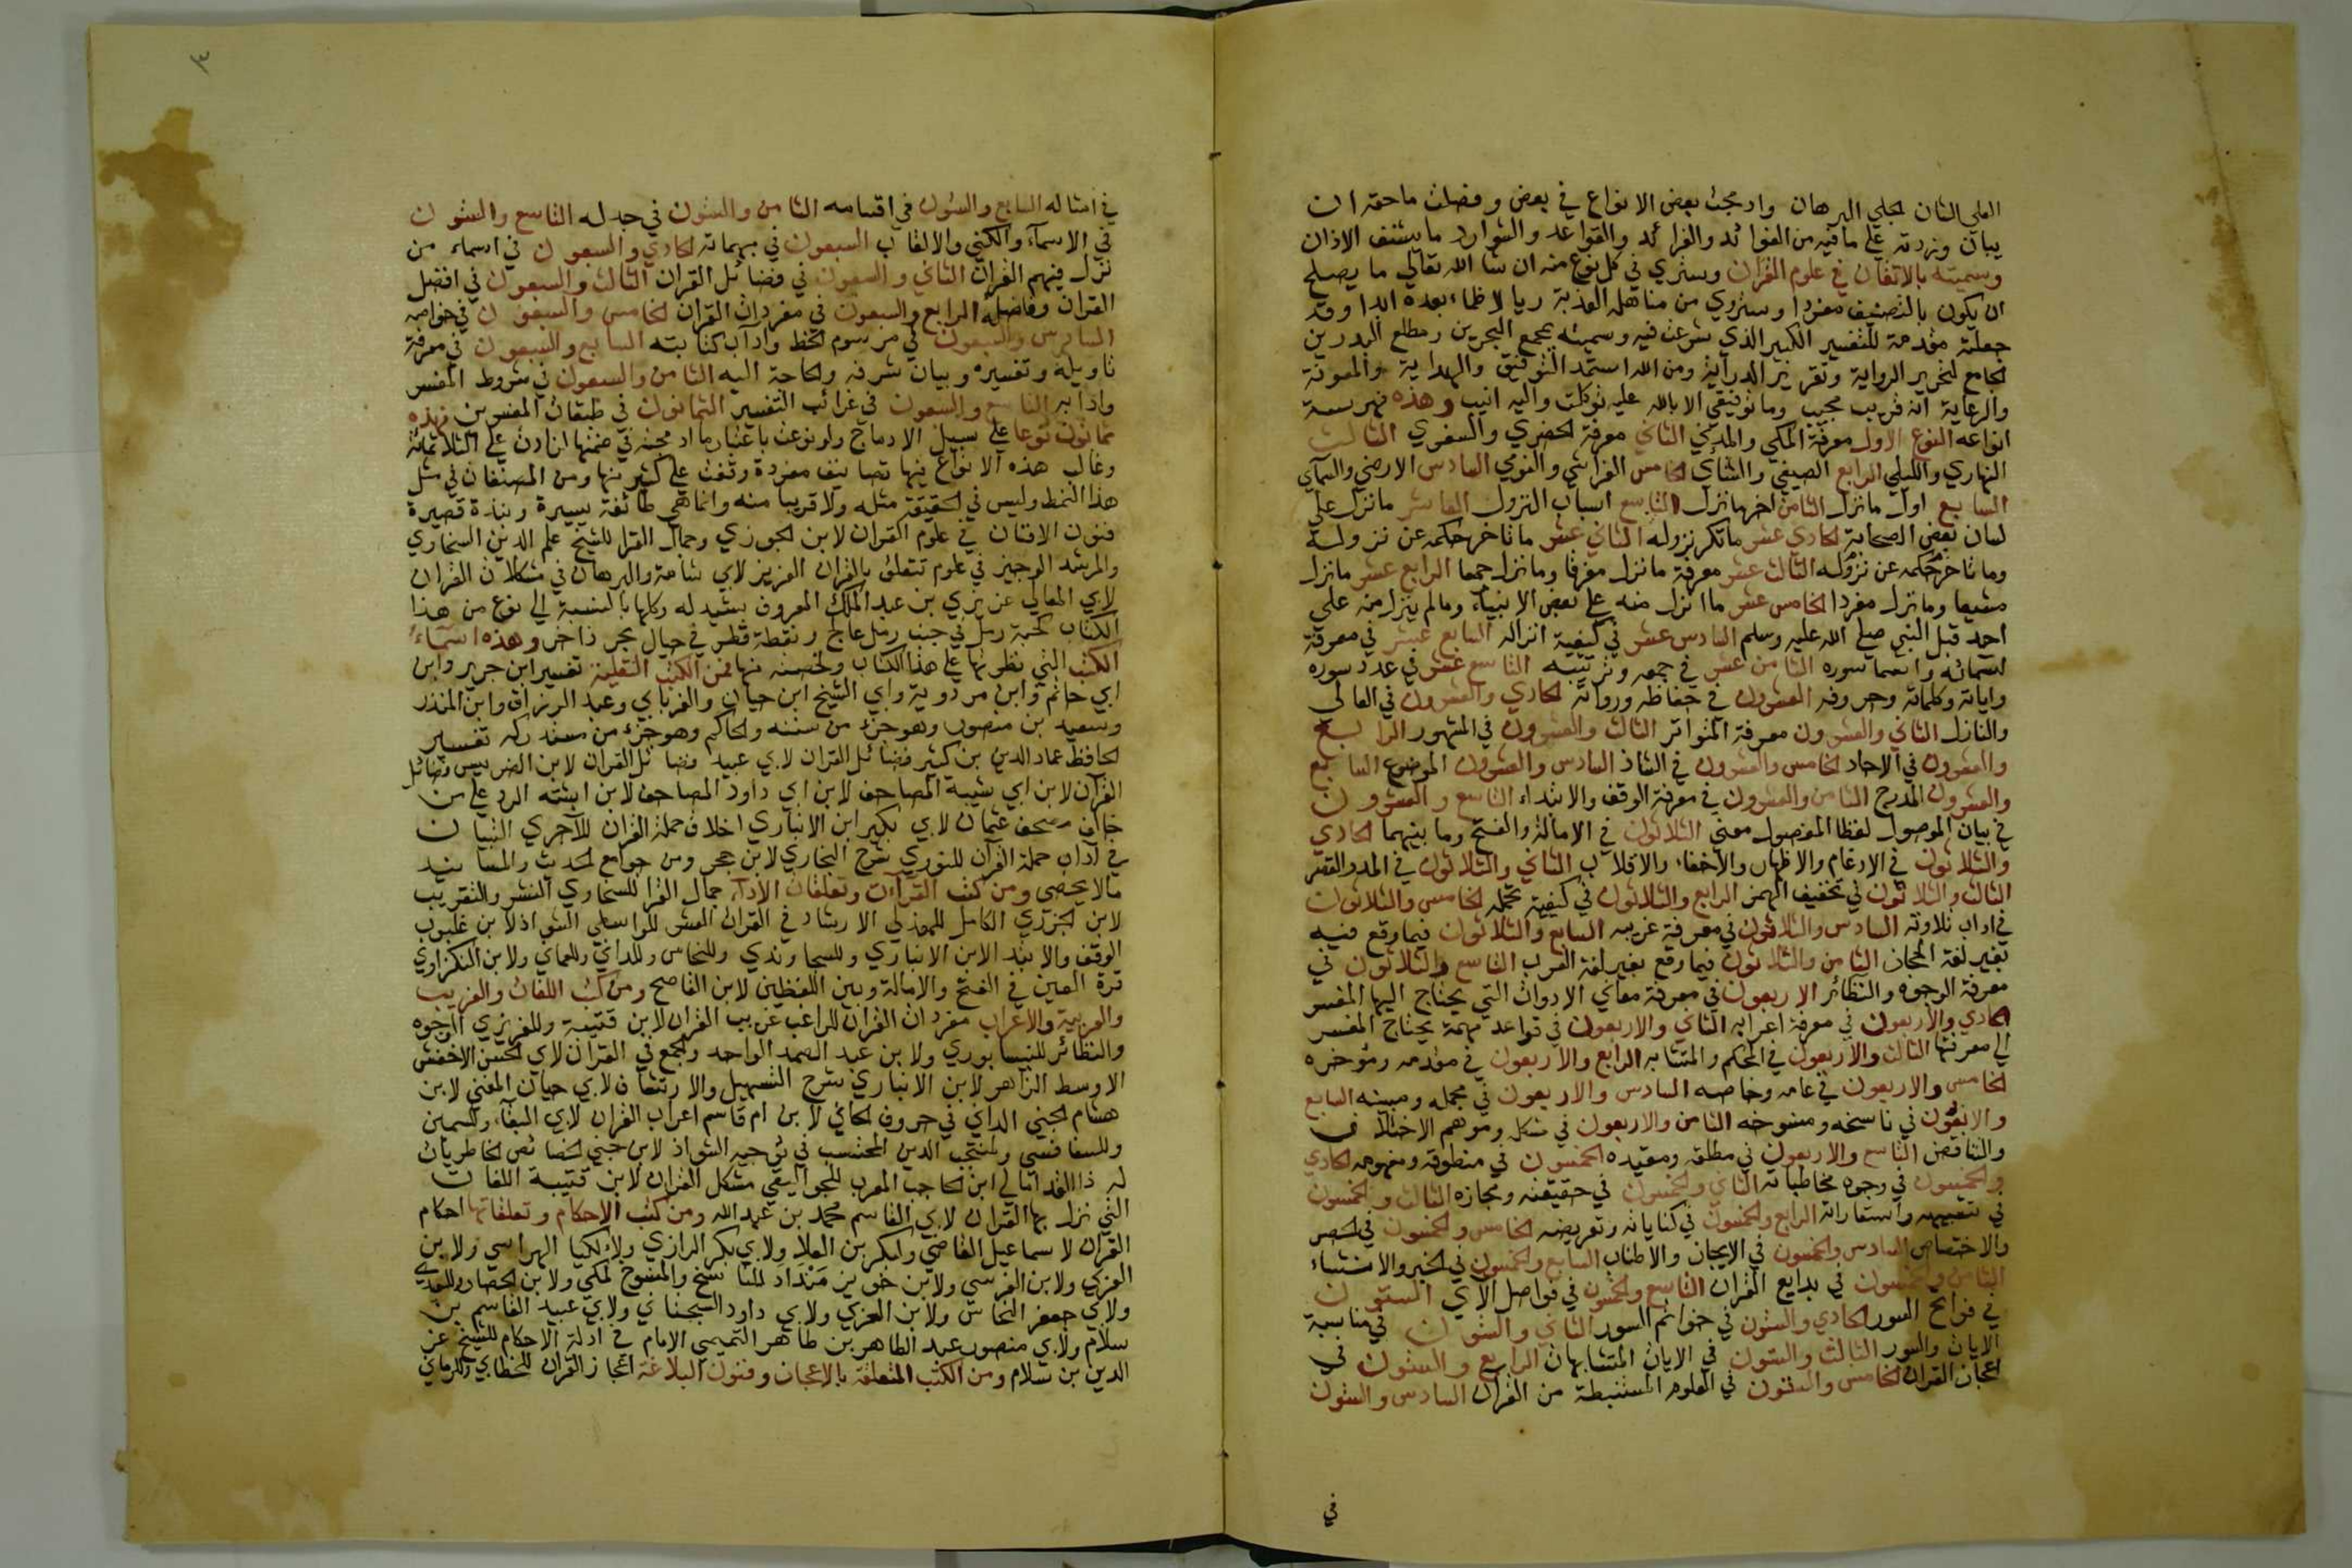 العلي الشان الجلي البرهان وادمجت بعض الانواع في بعض وفصلت ما حقه ان
يبان وزدته على ما فيه من الفوائد والفرائد والقواعد والشوارد ما يشنف الاذان
وسميته بالاتقان في علوم القران وسترى في كل نوع منه ان شا الله تعالى ما يصلح
ان يكون بالتصنيف مفردا وستروي من مناهله العذبة ريا لا ظماء بعده ابدا وقد
جعلته مقدمة للتفسير الكبير الذي شرعت فيه وسميته بمجمع البحرين ومطلع البدرين
الجامع لتحرير الرواية وتقرير الدراية ومن الله استمد التوفيق والهداية والمعونة
والرعاية انه قريب مجيب وما توفيقي الا بالله عليه توكلت واليه انيب وهذه فهرسة
انواعه النوع الاول معرفة المكي والمدني الثاني معرفة الحضري والسفري الثالث
النهاري والليلي الرابع الصيفي والشتأي الخامس الفراشي والنومي السادس الارضي والسمآي
السابع اول ما نزل الثامن اخر ما نزل التاسع اسباب النزول العاشر ما نزل على
لسان بعض الصحابة الحادي عشر ما تكرر نزوله الثاني عشر ما تاخر حكمه عن نزوله
وما تاخر حكمه عن نزوله الثالث عشر معرفة ما نزل مفرقا وما نزل جمعا الرابع عشر ما نزل
مشيعا وما نزل مفردا الخامس عشر ما انزل منه على بعض الانبياء وما لم ينزل منه على
احد قبل النبي صلى الله عليه وسلم السادس عشر في كيفية انزاله السابع عشر في معرفة
اسمائه واسما سوره الثامن عشر في جمعه وترتيبه التاسع عشر في عدد سوره
واياته وكلماته وحروفه العشرون في حفاظه ورواته الحادي والعشرون في العالي
والنازل الثاني والعشرون معرفة المتواتر الثالث والعشرون في المشهور الرابع
والعشرون في الاحاد الخامس والعشرون في الشاذ السادس والعشرون الموضوع السابع
والعشرون المدرج الثامن والعشرون في معرفة الوقف والابتداء التاسع والعشرون
في بيان الموصول لفظا المفصول معنى الثلاثون في الامالة والفتح وما بينهما الحادي
والثلاثون في الادغام والاظهار والاخفاء والاقلاب الثاني والثلاثون في المد والقصر
الثالث والثلاثون في تخفيف الهمز الرابع والثلاثون في كيفية تحمله الخامس والثلاثون
في اداب تلاوته السادس والثلاثون في معرفة غريبه السابع والثلاثون فيما وقع فيه
بغير لغة الحجاز الثامن والثلاثون فيما وقع بغير لغة العرب التاسع والثلاثون في
معرفة الوجوه والنظائر الاربعون في معرفة معاني الادوات التي يحتاج اليها المفسر
الحادي والاربعون في معرفة اعرابه الثاني والاربعون في قواعد مهمة يحتاج المفسر
الى معرفتها الثالث والاربعون في المحكم والمتشابه الرابع والاربعون في مقدمه ومؤخره
الخامس والاربعون في عامه وخاصه السادس والاربعون في مجمله ومبينه السابع
والاربعون في ناسخه ومنسوخه الثامن والاربعون في مشكله وموهم الاختلاف
والتناقض التاسع والاربعون في مطلقه ومقيده الخمسون في منطوقه ومفهومه الحادي
والخمسون في وجوه مخاطباته الثاني والخمسون في حقيقته ومجازه الثالث والخمسون
في تشبيهه واستعاراته الرابع والخمسون في كناياته وتعريضه الخامس والخمسون في الحصر
والاختصاص السادس والخمسون في الايجاز والاطناب السابع والخمسون في الخبر والانشاء
الثامن والخمسون في بدايع القران التاسع والخمسون في فواصل الآي الستون
في فواتح السور الحادي والستون في خواتم السور الثاني والستون في مناسبة
الايات والسور الثالث والستون في الايات المتشابهات الرابع والستون في
اعجاز القران الخامس والستون في العلوم المستنبطة من القران السادس والستون
في
٣
في امثاله السابع والستون في اقسامه الثامن والستون في جدله التاسع والستون
في الاسمآء والكنى والالقاب السبعون في مبهماته الحادي والسبعون في اسماء من
نزل فيهم القران الثاني والسبعون في فضائل القران الثالث والسبعون في افضل
القران وفاضله الرابع والسبعون في مفردات القران الخامس والسبعون في خواصه
السادس والسبعون في مرسوم الخط وآداب كتابته السابع والسبعون في معرفة
تاويله وتفسيره وبيان شرفه والحاجة اليه الثامن والسبعون في شروط المفسر
وادابه التاسع والسبعون في غرائب التفسير الثمانون في طبقات المفسرين فهذه
ثمانون نوعا على سبيل الادماج ولو نوعت باعتبار ما ادمجته في ضمنها لزادت على الثلاثمائة
وغالب هذه الانواع فيها تصانيف مفردة وقفت على كثير منها ومن المصنفات في مثل
هذا النمط وليس في الحقيقة مثله ولا قريبا منه وانما هي طائفة يسيرة ونبذة قصيرة
فنون الافنان في علوم القران لابن الجوزي وجمال القرا للشيخ علم الدين السخاوي
والمرشد الوجيز في علوم تتعلق بالقران العزيز لابي شامة والبرهان في مشكلات القران
لابي المعالي عزيزي بن عبد الملك المعروف بشيدله وكلها بالنسبة الى نوع من هذا
الكتاب كحبة رمل في جنب رمل عالج ونقطة قطر في حيال بحر زاخر وهذه اسماء
الكتب التي نظرتها على هذا الكتاب ولخصته منها فمن الكتب النقلية تفسير ابن جرير وابن
ابي حاتم وابن مردوية وابي الشيخ ابن حيان والفريابي وعبد الرزاق وابن المنذر
وسعيد بن منصور وهو جزء من سننه والحاكم وهو جزء من مستدركه تفسير
الحافظ عماد الدين بن كثير فضائل القران لابي عبيد فضائل القران لابن الضريس فضائل
القرآن لابن ابي شيبة المصاحف لابن ابي داود المصاحف لابن اشته الرد على من
خالف مصحف عثمان لابي بكر ابن الانباري اخلاق حملة القران للآجري التبيان
في آداب حملة القرآن للنووي شرح البخاري لابن حجر ومن جوامع الحديث والمسانيد
ما لا يحصى ومن كتب القرآءت وتعلقات الادآء جمال القرا للسخاوي النشر والتقريب
لابن الجزري الكامل للهذلي الارشاد في القرآت العشر للواسطي الشواذ لابن غلبون
الوقف والابتدا لابن الانباري وللسجاوندي وللنحاس وللداني وللعماني ولابن النكزاوي
قرة العين في الفتح والامالة وبين اللفظين لابن القاصح ومن كتب اللغات والغريب
والعربية والاعراب مفردات القران للراغب غريب القران لابن قتيبة وللعزيزي الوجوه
والنظائر للنيسابوري ولابن عبد الصمد الواحد والجمع في القران لابي الحسن الاخفش
الاوسط الزاهر لابن الانباري شرح التسهيل والارتشاف لابي حيان المغني لابن
هشام الجني الداني في حروف المعاني لابن ام قاسم اعراب القران لابي البقآء وللسمين
وللسفاقسي ولمنتجب الدين المحتسب في توجيه الشواذ لابن جني الخصائص الخاطريات
له ذا القد امالي ابن الحاجب المعرب للجواليقي مشكل القران لابن قتيبة اللغات
التي نزل بها القران لابي القاسم محمد بن عبد الله ومن كتب الاحكام وتعلقاتها احكام
القران لاسماعيل القاضي ولبكر بن العلا ولابي بكر الرازي ولالكيا الهراسي ولابن
العربي ولابن الفرس ولابن خويز مَنْدَاد الناسخ والمنسوخ لمكي ولابن الحصار وللسعيدي
ولابي جعفر النحاس ولابن العربي ولابي داود السجستاني ولابي عبيد القاسم بن
سلام ولابي منصور عبد الطاهر بن طاهر التميمي الامام في ادلة الاحكام للشيخ عز
الدين بن سلام ومن الكتب المتعلقة بالاعجاز وفنون البلاغة اعجاز القران للخطابي وللرماني